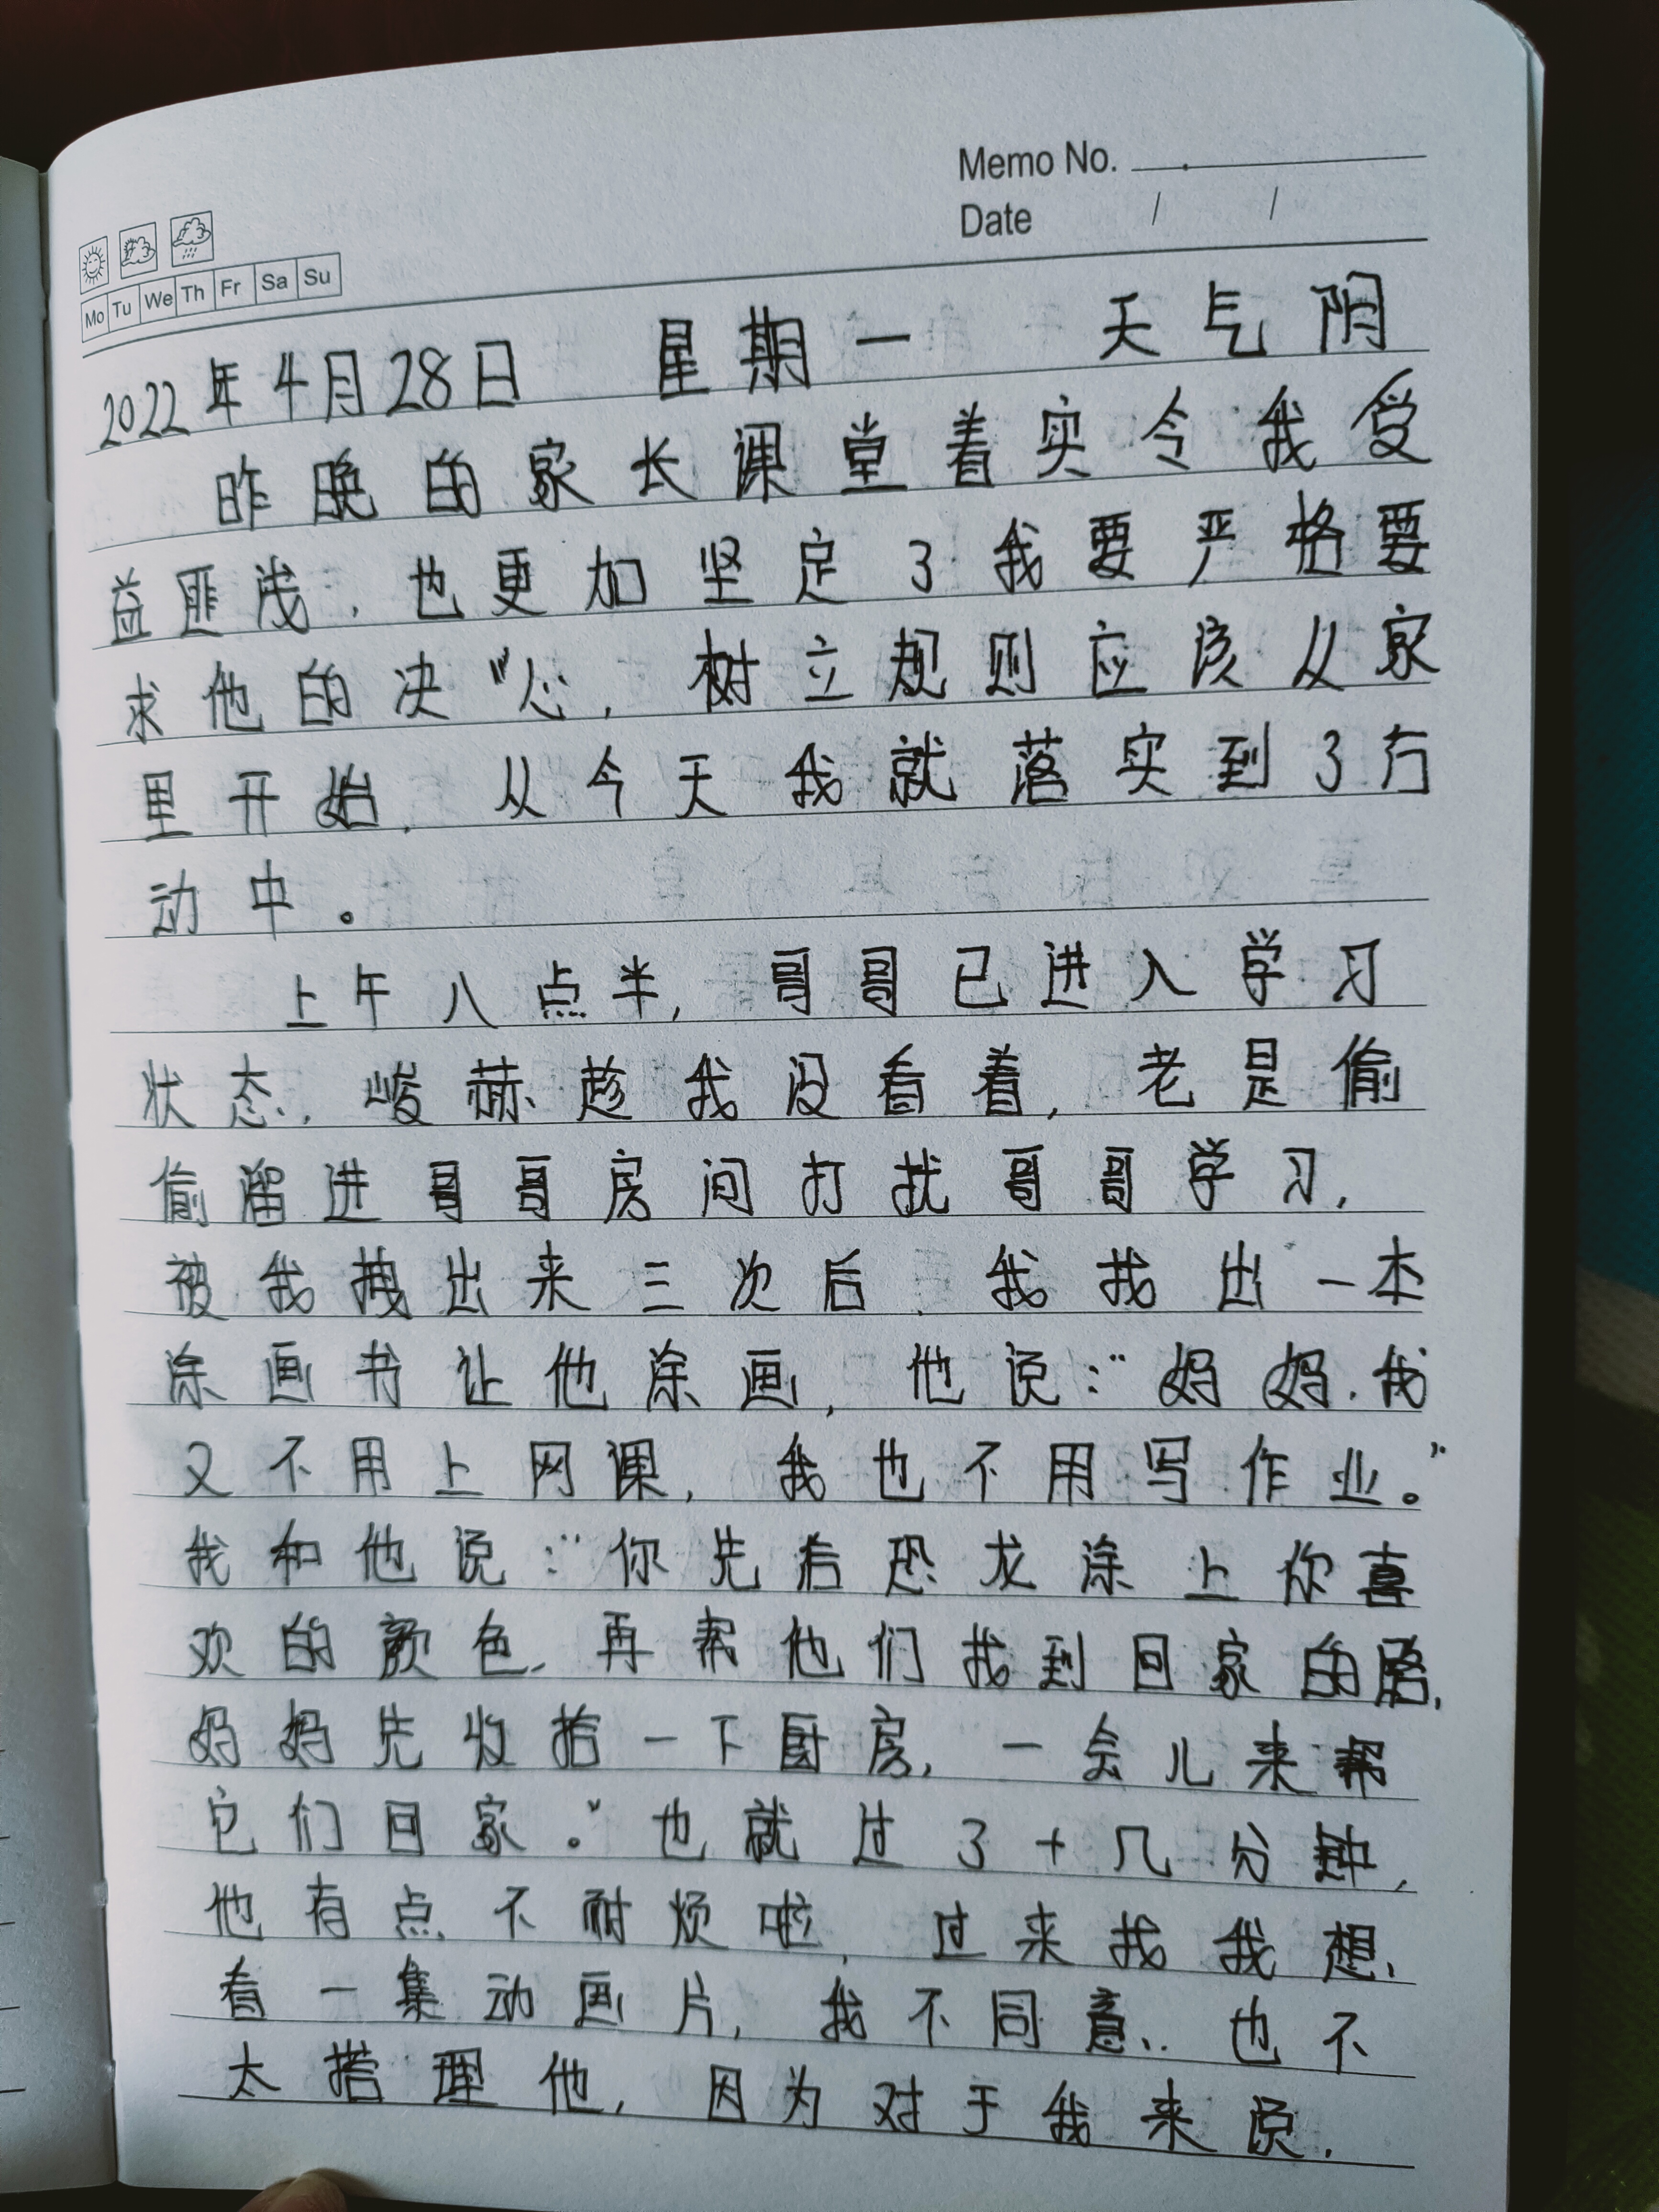 Memo No.
Date / /
Mo Tu We Th Fr Sa Su
2022年4月28日 星期一 天气阴
昨晚的家长课堂着实令我受
益匪浅，也更加坚定了我要严格要
求他的决"心，树立规则应该从家
里开始，从今天我就落实到了行
动中。
上午八点半，哥哥已进入学习
状态，峻赫趁我没看着，老是偷
偷溜进哥哥房间打扰哥哥学习，
被我拽出来三次后，我找出一本
涂画书让他涂画，他说："妈妈，我
又不用上网课，我也不用写作业。"
我和他说："你先给恐龙涂上你喜
欢的颜色，再帮他们找到回家的路，
妈妈先收拾一下厨房，一会儿来帮
它们回家。"也就过了十几分钟，
他有点不耐烦啦，过来找我想，
看一集动画片，我不同意，也不
太搭理他，因为对于我来说，